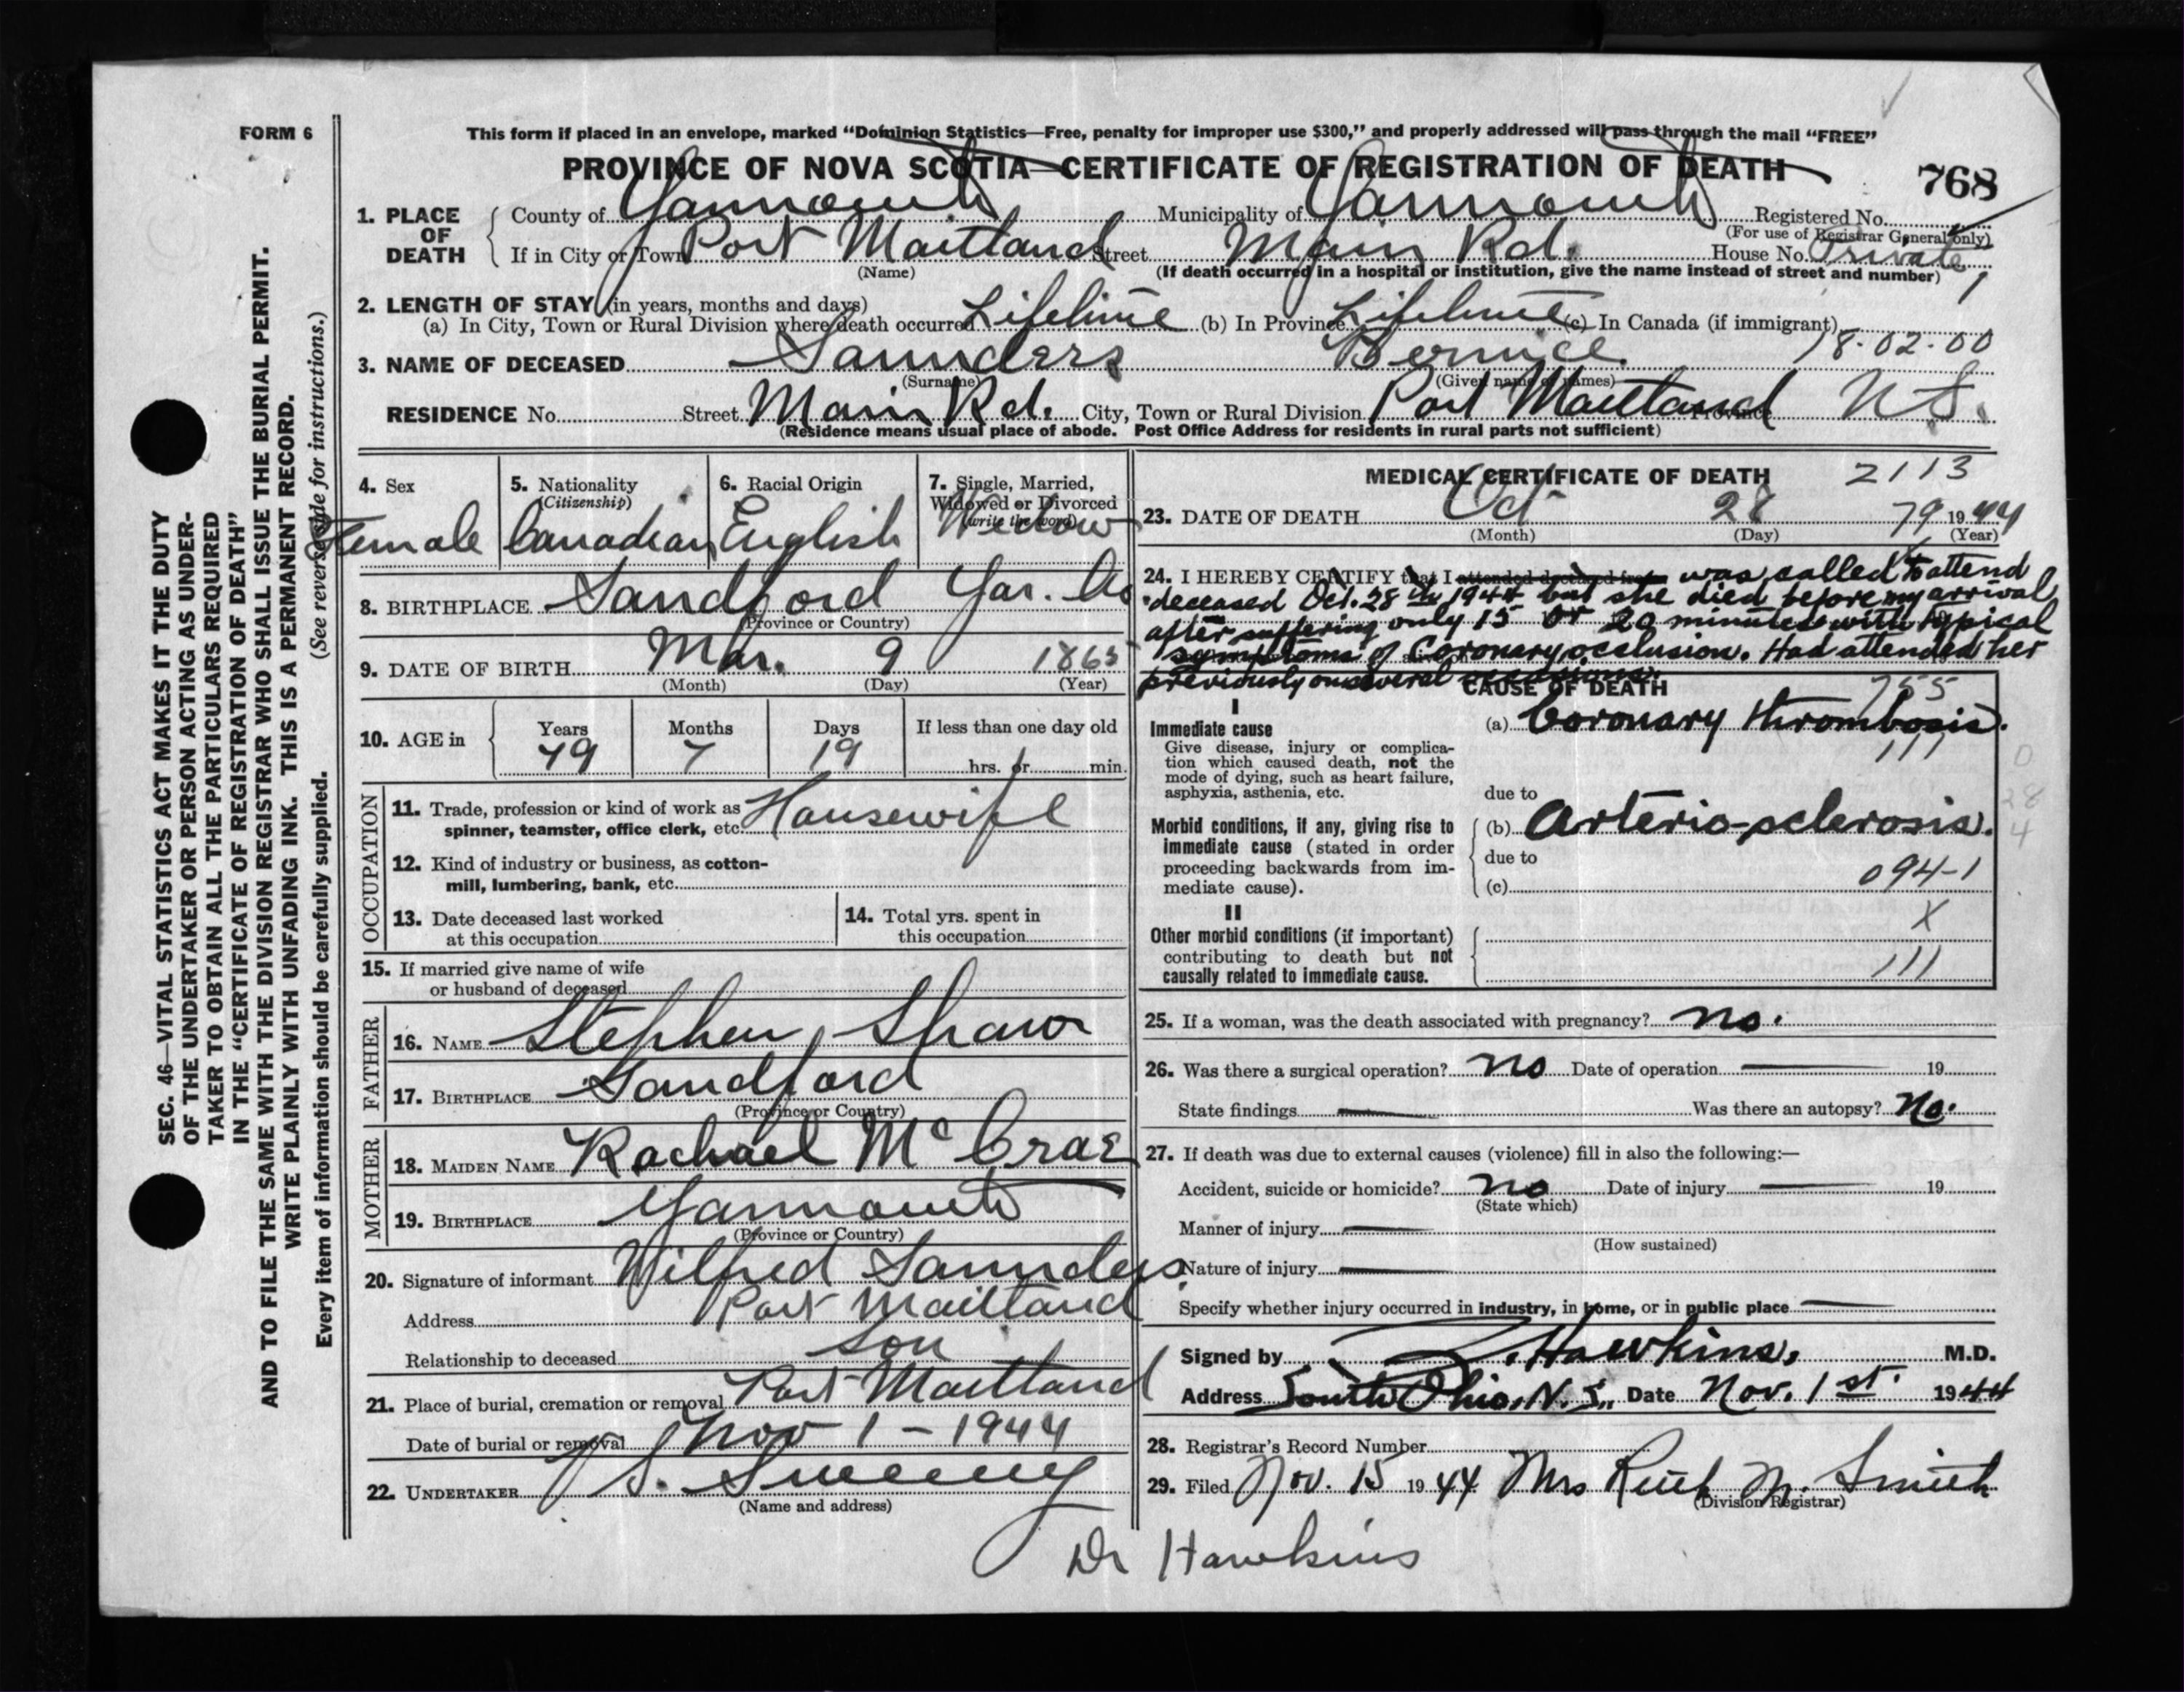 FORM 6
This form if placed in an envelope, marked “Dominion Statistics—Free, penalty for improper use $300,” and properly addressed will pass through the mail “FREE”
PROVINCE OF NOVA SCOTIA—CERTIFICATE OF REGISTRATION OF DEATH
768
1. PLACE OF DEATH
County of Yarmouth Municipality of Yarmouth Registered No.
(For use of Registrar General only)
If in City or Town Port Maitland Street Main Rd. House No. Private
(Name) (If death occurred in a hospital or institution, give the name instead of street and number)
2. LENGTH OF STAY (in years, months and days)
(a) In City, Town or Rural Division where death occurred Lifetime (b) In Province Lifetime (c) In Canada (if immigrant)
18-02-00
3. NAME OF DECEASED Saunders Bernice
(Surname) (Given name or names)
RESIDENCE No. Street Main Rd. City, Town or Rural Division Port Maitland Province N S.
(Residence means usual place of abode. Post Office Address for residents in rural parts not sufficient)
4. Sex
Female
5. Nationality
(Citizenship)
Canadian
6. Racial Origin
English
7. Single, Married,
Widowed or Divorced
(write the word)
Widow
8. BIRTHPLACE Sandford Yar. Co
(Province or Country)
9. DATE OF BIRTH Mar. 9 1865
(Month) (Day) (Year)
10. AGE in
Years Months Days If less than one day old
79 7 19 hrs. or min.
OCCUPATION
11. Trade, profession or kind of work as
spinner, teamster, office clerk, etc. Housewife
12. Kind of industry or business, as cotton-
mill, lumbering, bank, etc.
13. Date deceased last worked
at this occupation
14. Total yrs. spent in
this occupation
15. If married give name of wife
or husband of deceased
FATHER
16. NAME Stephen Shaw
17. BIRTHPLACE Sandford
(Province or Country)
MOTHER
18. MAIDEN NAME Rachael McCrae
19. BIRTHPLACE Yarmouth
(Province or Country)
20. Signature of informant Wilfred Saunders
Address Port Maitland
Relationship to deceased Son
21. Place of burial, cremation or removal Port Maitland
Date of burial or removal Nov 1 - 1944
22. UNDERTAKER V S. Sweeny
(Name and address)
MEDICAL CERTIFICATE OF DEATH 2113
23. DATE OF DEATH Oct 28 79 1944
(Month) (Day) (Year)
24. I HEREBY CERTIFY that I attended deceased from was called to attend
deceased Oct. 28th 1944 but she died before my arrival
after suffering only 15 or 20 minutes with typical
symptoms of Coronary occlusion. Had attended her
previously on several occasions.
CAUSE OF DEATH
755
I
Immediate cause
Give disease, injury or complica-
tion which caused death, not the
mode of dying, such as heart failure,
asphyxia, asthenia, etc.
(a) Coronary thrombosis.
111
due to
Morbid conditions, if any, giving rise to
immediate cause (stated in order
proceeding backwards from im-
mediate cause).
(b) Arterio-sclerosis.
due to
(c) 094-1
0
28
4
II
Other morbid conditions (if important)
contributing to death but not
causally related to immediate cause.
X
111
25. If a woman, was the death associated with pregnancy? no.
26. Was there a surgical operation? no Date of operation 19
State findings Was there an autopsy? No.
27. If death was due to external causes (violence) fill in also the following:—
Accident, suicide or homicide? no Date of injury 19
(State which)
Manner of injury
(How sustained)
Nature of injury
Specify whether injury occurred in industry, in home, or in public place
Signed by Hawkins, M.D.
Address South Ohio, N.S. Date Nov. 1st. 1944
28. Registrar's Record Number
29. Filed Nov. 15 1944 Mrs Ruth M. Smith
(Division Registrar)
Dr Hawkins
SEC. 46—VITAL STATISTICS ACT MAKES IT THE DUTY
OF THE UNDERTAKER OR PERSON ACTING AS UNDER-
TAKER TO OBTAIN ALL THE PARTICULARS REQUIRED
IN THE “CERTIFICATE OF REGISTRATION OF DEATH”
AND TO FILE THE SAME WITH THE DIVISION REGISTRAR WHO SHALL ISSUE THE BURIAL PERMIT.
WRITE PLAINLY WITH UNFADING INK. THIS IS A PERMANENT RECORD.
Every item of information should be carefully supplied. (See reverse side for instructions.)